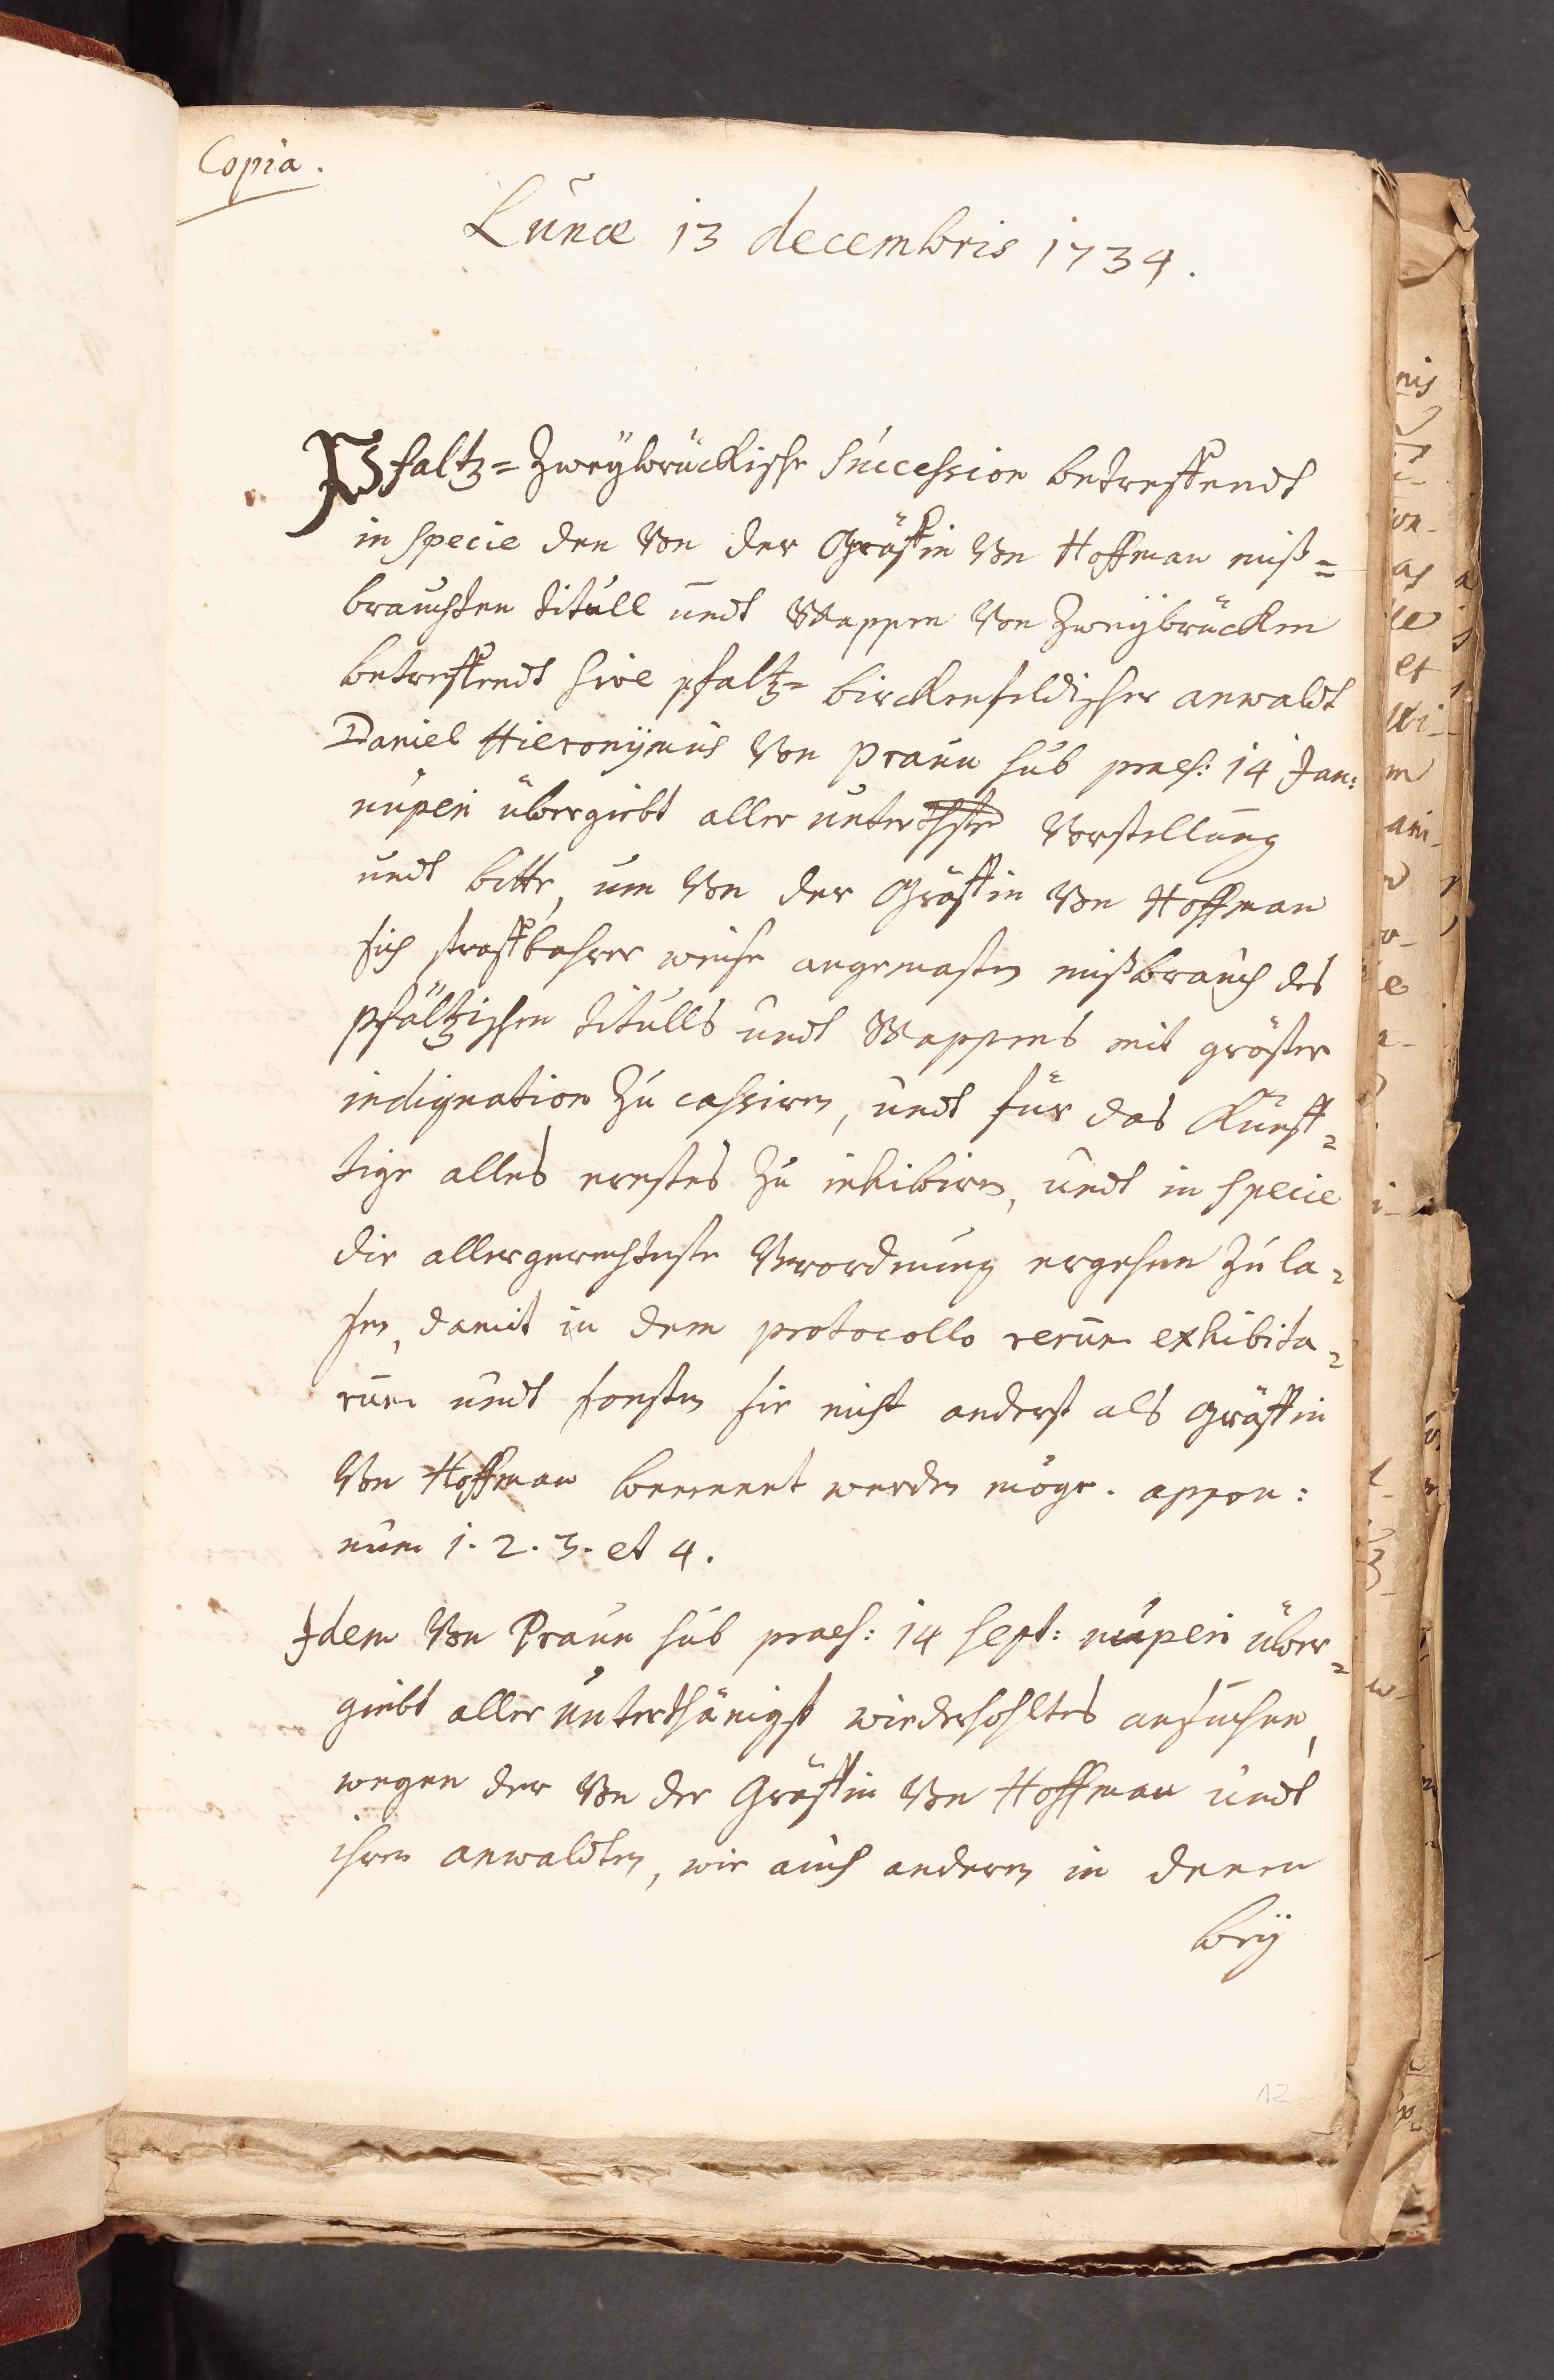 Copia.
Lunæ 13 decembris 1734.
Pfaltz=Zweÿbrückische Succession betreffendt
in specie den Von der Gräffin Von Hoffman miß=
brauchten titull undt Wappen Von Zweÿbrücken
betreffendt sive pfaltz= birckenfeldischer anwaldt
Daniel Hieronÿmus Von Praun sub praes: 14 Jan:
nuperi übergiebt aller unterthste Vorstellung
undt bitte, um Von der Gräffin Von Hoffman
sich straffbahrer weise angemasten mißbrauch des
pfältzischen titulls undt Wappens mit gröster
indignation zu cassiren, undt für das Künff=
tige alles ernstes zu inhibiren, undt in specie
die allergerechteste Verordnung ergehen zu la=
sen, damit in dem protocollo rerum exhibita=
rum undt sonsten sie nicht anderst als Gräffin
Von Hoffman benennt werden möge. appon:
num 1. 2. 3. et 4.
Idem Von Praun sub praes: 14 Sept: nuperi über=
giebt aller unterthänigst wiederhohltes ansuchen,
wegen der Von der Gräffin Von Hoffman undt
ihren anwaldten, wie auch anderen in denen
beÿ
12